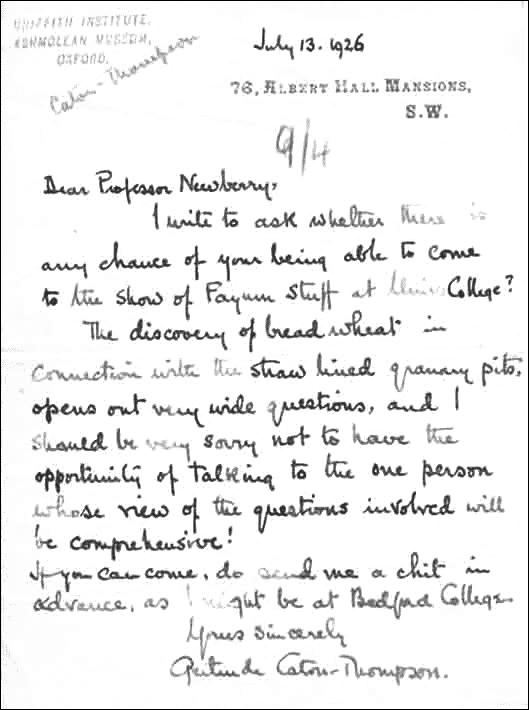 GRIFFITH INSTITUTE,
ASHMOLEAN MUSEUM,
OXFORD.
Caton-Thompson
July 13. 1926
76, ALBERT HALL MANSIONS,
S.W.
9/4
Dear Professor Newberry,
I write to ask whether there is
any chance of your being able to come
to the show of Fayum stuff at Univ. College?
The discovery of bread wheat in
connection with the straw lined granary pits,
opens out very wide questions, and I
should be very sorry not to have the
opportunity of talking to the one person
whose view of the questions involved will
be comprehensive!
If you can come, do send me a chit in
advance, as I might be at Bedford College
Yours sincerely
Gertrude Caton-Thompson.